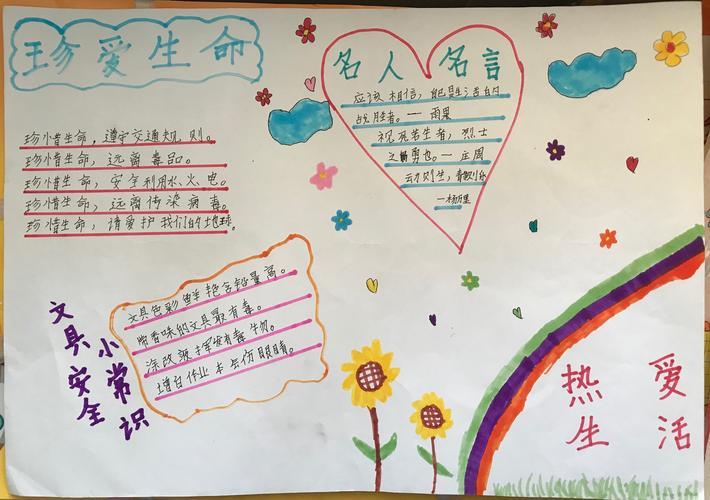 珍爱生命
珍惜生命，遵守交通规则。
珍惜生命，远离毒品。
珍惜生命，安全利用水、火、电。
珍惜生命，远离传染病毒。
珍惜生命，请爱护我们的地球。
名人名言
应该相信，自己是生活的
战胜者。—雨果
视死若生者，烈士
之勇也。—庄周
动则生，静则乐
—杨万里
文具安全
小常识
文具色彩鲜艳含铅量高。
带香味的文具最有毒。
涂改液挥发有毒物。
增白作业本会伤眼睛。
热爱
生活